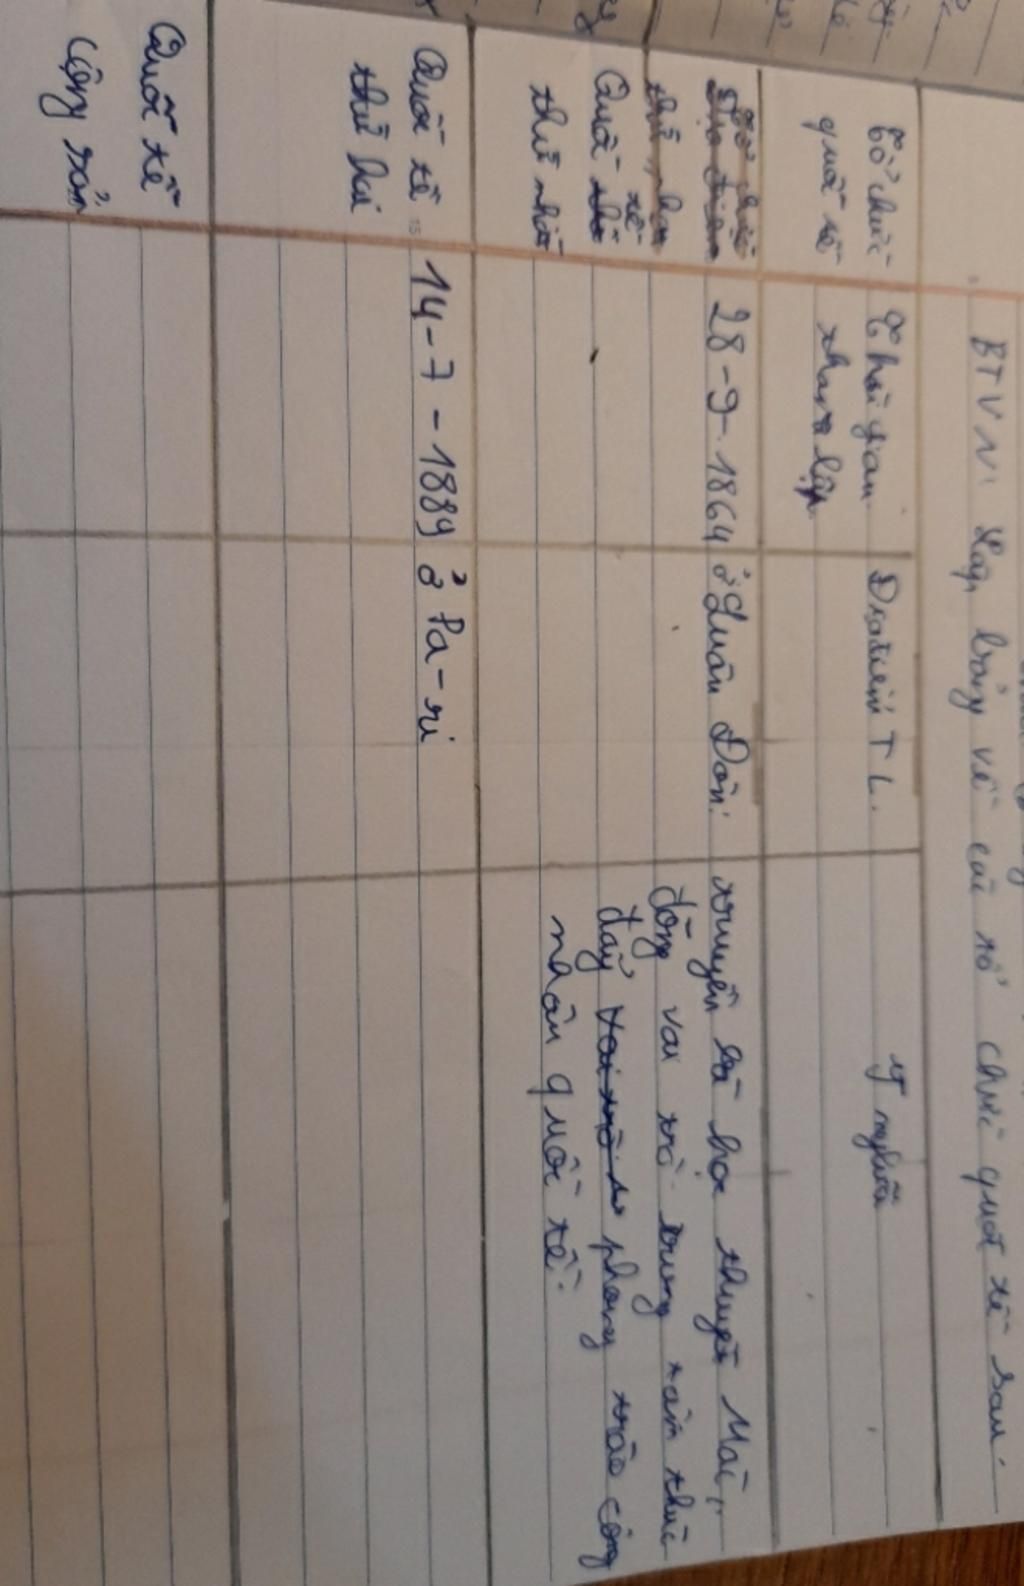 BTVN: Lập bảng về các tổ chức quốc tế sau.
Tổ chức
quốc tế
Thời gian
thành lập
Địa điểm TL.
Ý nghĩa
Quốc tế
thứ nhất
28-9-1864
ở Luân Đôn:
truyền bá học thuyết Mác,
đóng vai trò trung tâm thúc
đẩy phong trào công
nhân quốc tế.
Quốc tế
thứ hai
14-7-1889
ở Pa-ri
Quốc tế
cộng sản